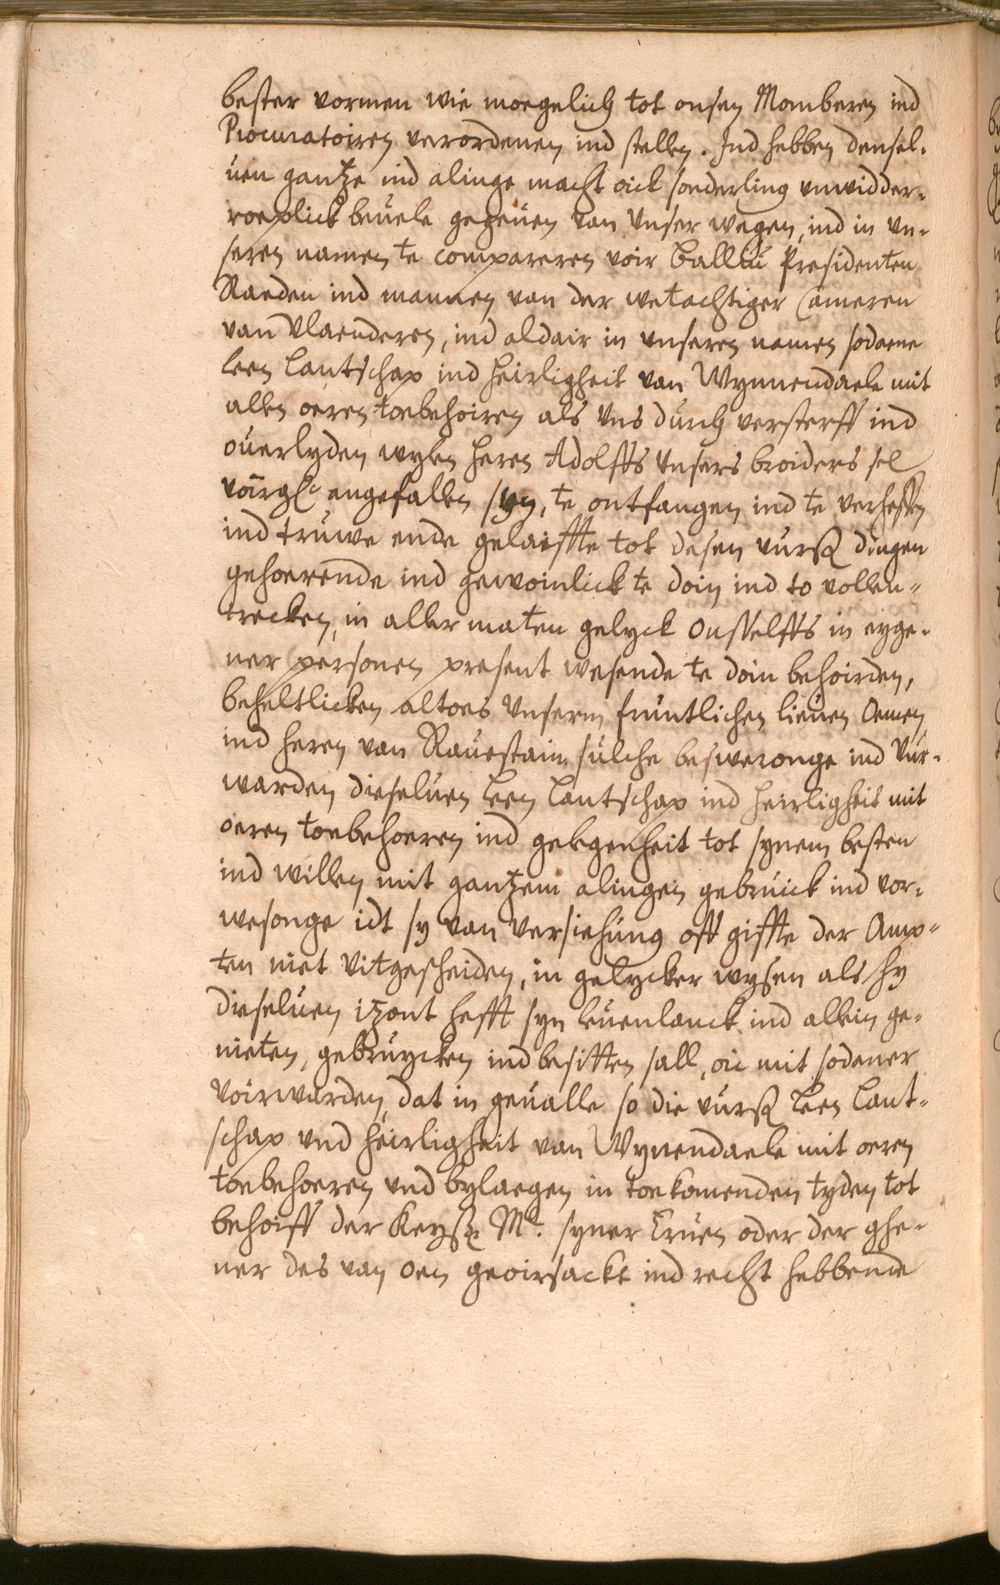 bester vormen wie moegelich tot onsen Momberen ind
Procuratoiren verordenen ind stellen. Ind hebben densel-
uen gantze ind alinge macht oick sonderling vnwidder-
roeplick beuele gegeuen van vnser wegen, ind in vn-
seren namen te compareren voir Balliu Presidenten
Raeden ind mannen van der wetachtiger Cameren
van Vlaenderen, ind aldair in vnseren namen sodaene
leen Lantschap ind heirligheit van Wynnendaele mit
allen oeren toebehoiren als vns durch versterff ind
ouerlyden wylen heren Adolffs vnsers broiders sel
voirgl. angefallen syn, te ontfangen ind te verheffen
ind truwe ende gelaiffte tot desen vurß dingen
gehoerende ind gewoinlick te doin ind to vollen-
trecken, in aller maten gelyck Onsselffs in eyge-
ner personen present wesende te doin behoirden,
beheltlicken altoes vnserm fruntlichen lieuen Oemen
ind heren van Rauestain sulche besweronge ind Vur-
warden dieseluen leen Lantschap ind heirligheit mit
oeren toebehoeren ind gelegenheit tot synem besten
ind willen mit gantzem alingen gebruick ind vor-
wesonge idt sy van versiehung off giffte der Amp-
ten niet vitgescheiden, in gelycker wysen als hy
dieseluen itzont hefft syn leuenlanck ind allein ge-
nieten, gebruycken ind besitten sall, oic mit sodener
voirwarden, dat in geualle so die vurß leen Lant-
schap vnd heirligheit van Wynendaele mit oeren
toebehoeren vnd bylaegen in toekomenden tyden tot
behoiff der Keyß Mt. syner Eruen oder der ghe-
ner des van oen geoirsackt ind recht hebbende